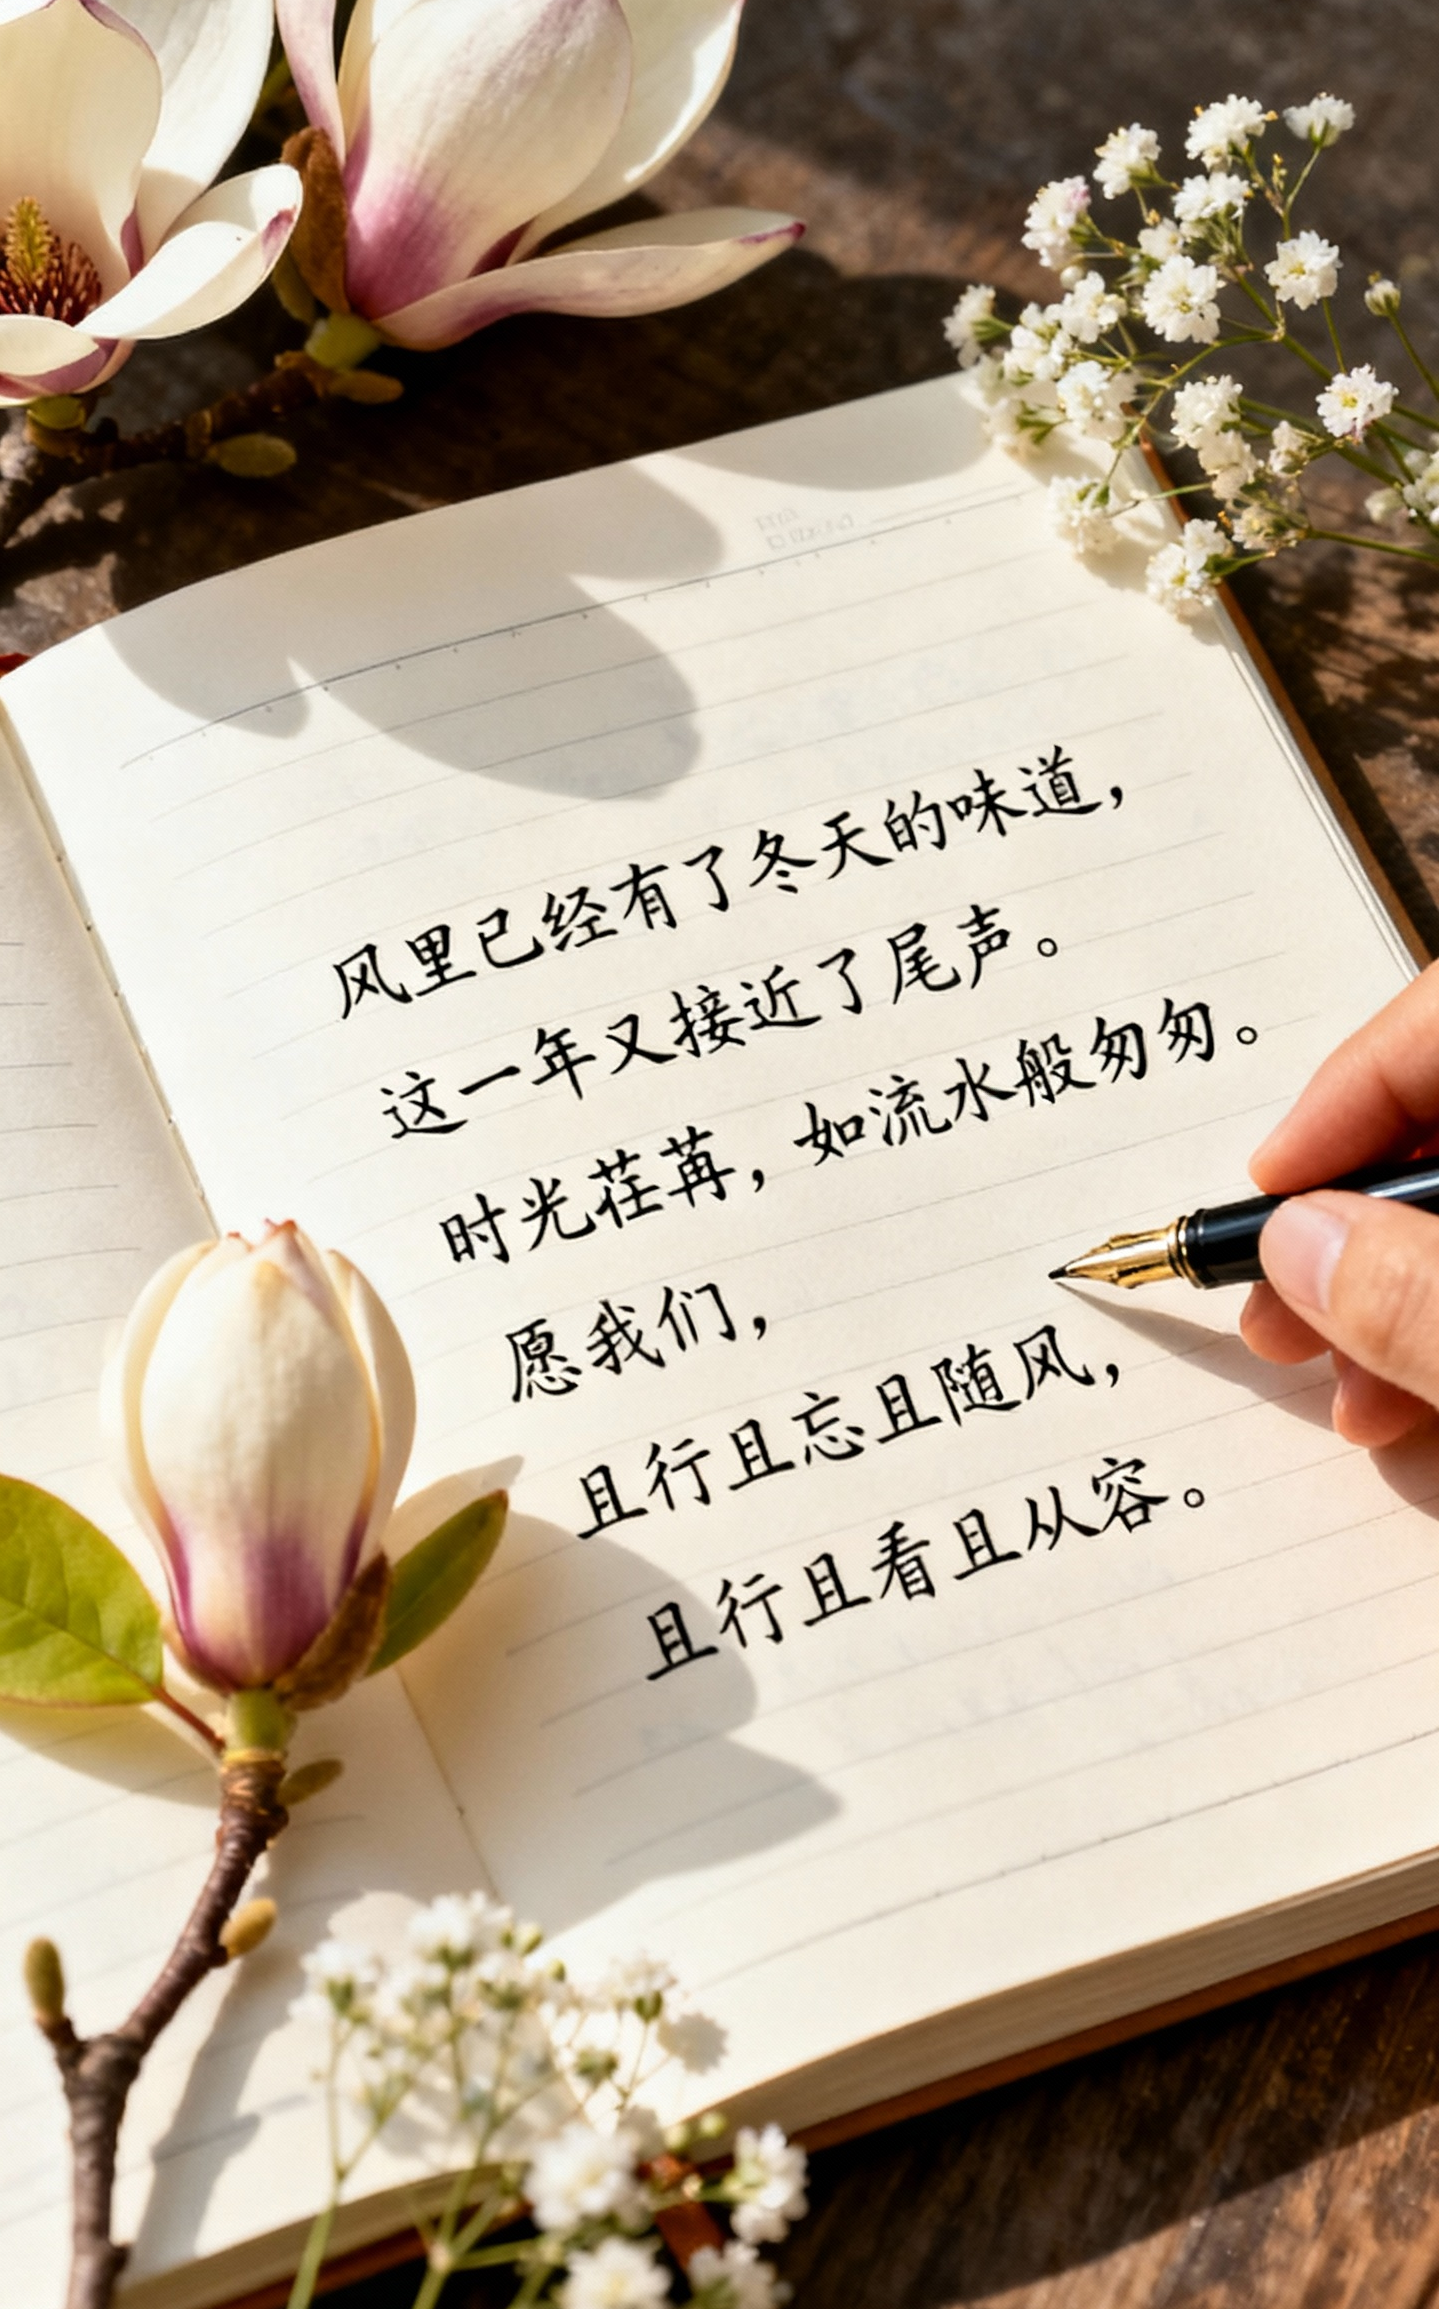 风里已经有了冬天的味道，
这一年又接近了尾声。
时光荏苒，如流水般匆匆。
愿我们，
且行且忘且随风，
且行且看且从容。